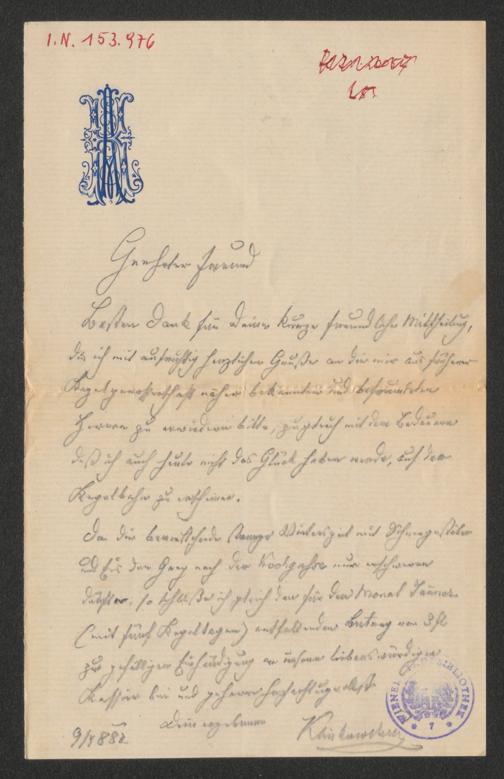 I.N. 153.976
Geehrter Freund
Besten Dank für Deine kurze freundliche Mittheilung,
die ich mit aufrichtig herzlichem Gruße an die mir aus früherer
Kegelgenossenschaft näher bekannten und befreundeten
Herren zu erwiedern bitte, zugleich mit dem Bedauern
daß ich auch heute nicht das Glück haben werde, auf der
Kegelbahn zu erscheinen.
Da die herrschende strenge Winterszeit mit Schneegestöber
und Eis den Gang nach der
dürfte, so schließe ich gleich den für den Monat Jänner
(mit fünf Kegeltagen) entfallenden Betrag von 3 fl
zur gefälligen Einhändigung an unsern liebenswürdigen
Kassier bei und geharre hochachtungsvollst
Dein ergebener
9/1 888
WIENER STADTBIBLIOTHEK
7